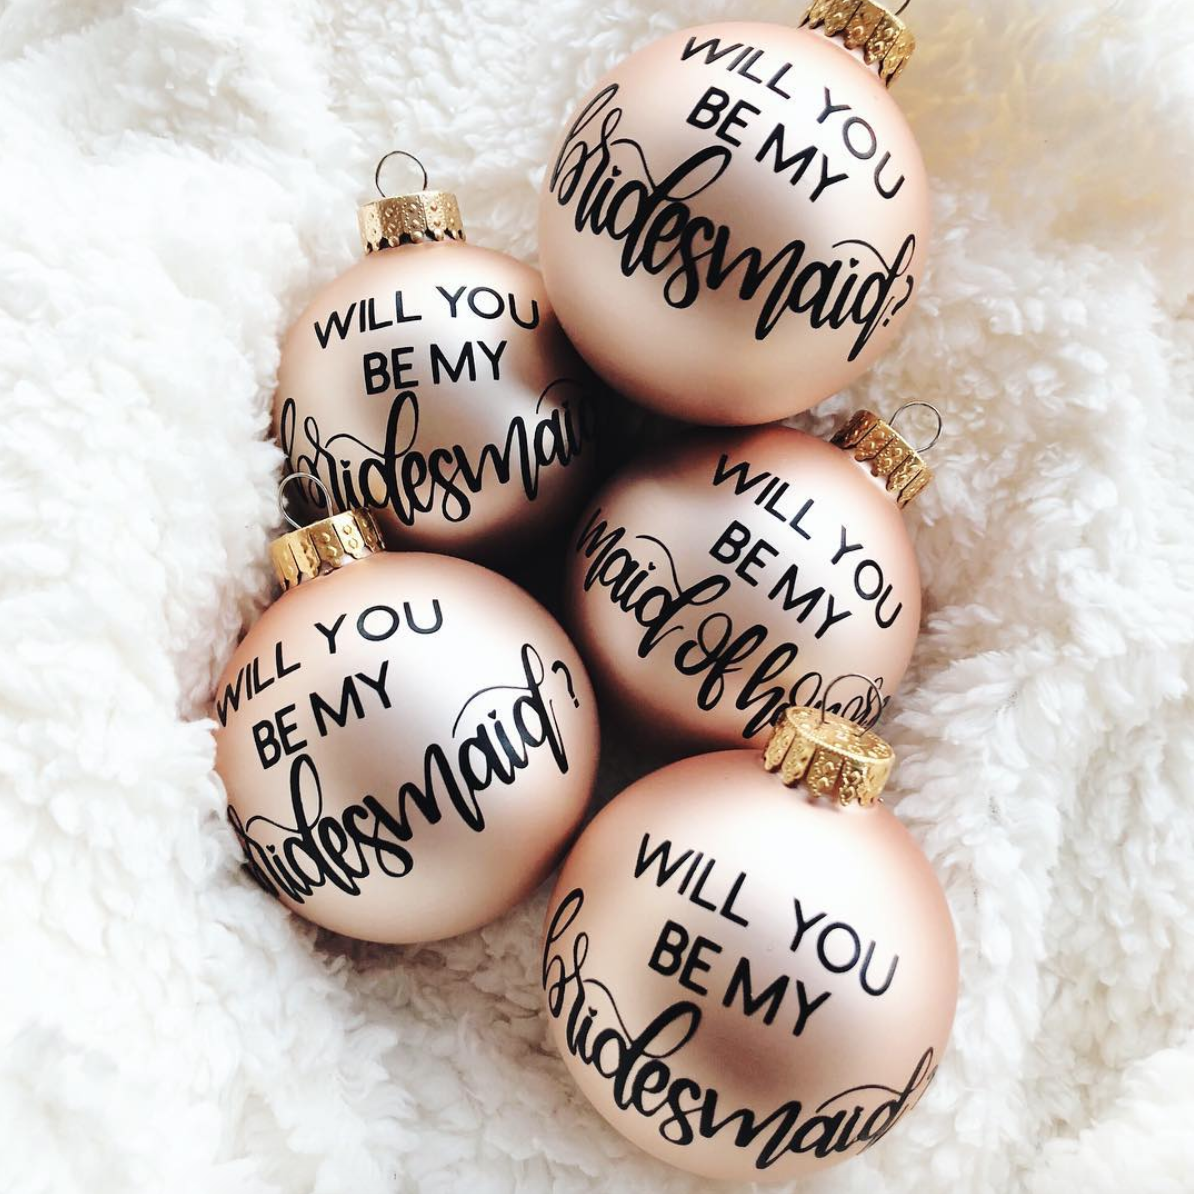 WILL YOU
BE MY
bridesmaid?
WILL YOU
BE MY
bridesmaid
WILL YOU
BE MY
maid of honor
WILL YOU
BE MY
bridesmaid?
WILL YOU
BE MY
bridesmaid?